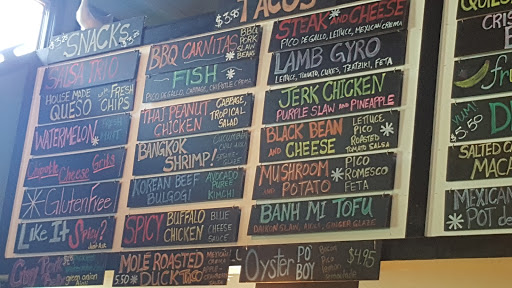 TACOS
$3.95
SNACKS
SALSA TRIO
HOUSE MADE QUESO WITH FRESH CHIPS
WATERMELON
Cheese
* Gluten Free
Like It Spicy?
Just Ask
green onion
BBQ CARNITAS
BBQ
PORK
SLAW
BEANS
FISH
PICO DE GALLO, CABBAGE, CHIPOTLE CREMA
THAI PEANUT CHICKEN
CABBAGE,
TROPICAL
SALAD
BANGKOK SHRIMP!
KOREAN BEEF BULGOGI
AVOCADO
PUREE
KIMCHI
SPICY BUFFALO CHICKEN
BLUE
CHEESE
SAUCE
MOLÉ ROASTED
DUCK TACO
STEAK AND CHEESE
PICO DE GALLO, LETTUCE, MEXICAN CREMA
LAMB GYRO
LETTUCE, TOMATO, CUKES, TZATZIKI, FETA
JERK CHICKEN
PURPLE SLAW AND PINEAPPLE
BLACK BEAN AND CHEESE
LETTUCE
PICO
ROASTED
TOMATO SALSA
MUSHROOM AND POTATO
PICO
ROMESCO
FETA
BANH MI TOFU
DAIKON SLAW, AIOLI, GINGER GLAZE
OYSTER PO BOY
$4.95
YUM!
5.50
SALTED
MACA
MEXICAN
POT DE